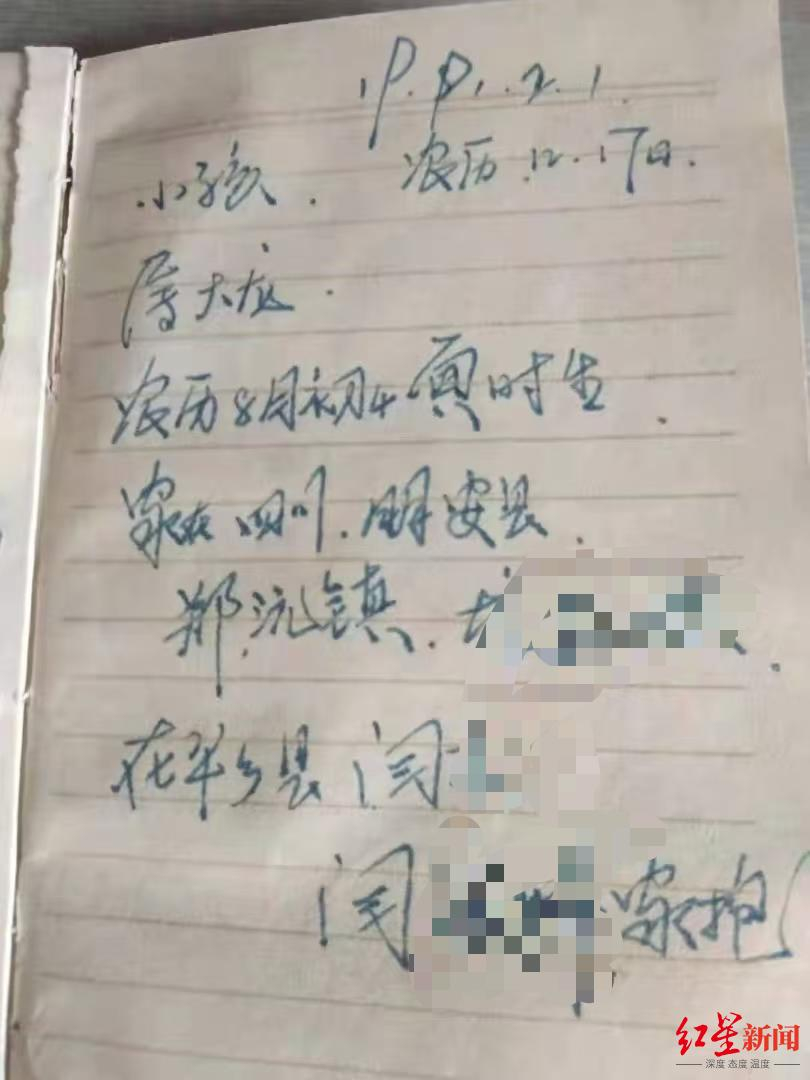 1991.2.1.
小孩. 农历.12.17日.
属大龙.
农历8月初4寅时生.
家在四川.朋安县.
郑 镇.
在平乡县闫
闫 家抱
红星新闻
深度 态度 温度